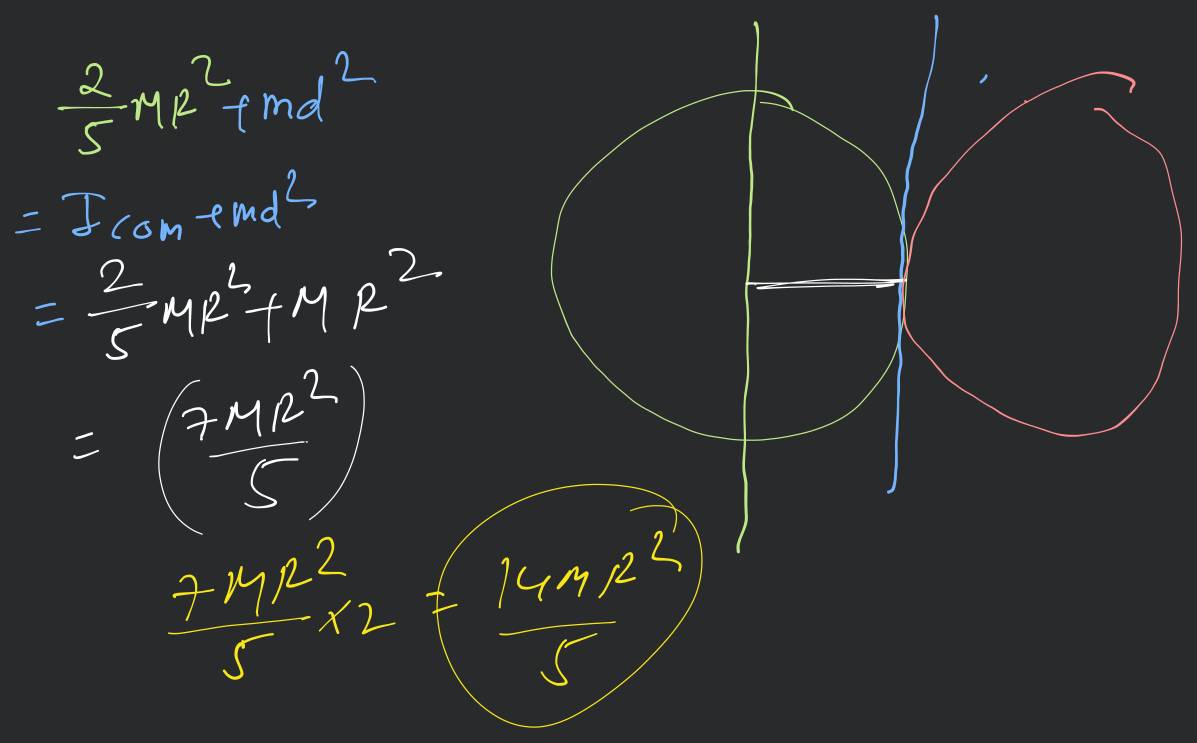 2/5 MR² + md²
= I com + md²
= 2/5 MR² + MR²
= (7MR²/5)
7MR²/5 × 2 = 14MR²/5